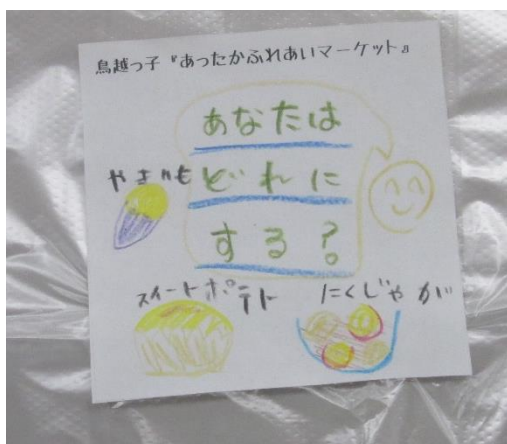 鳥越っ子『あったかふれあいマーケット』
あなたは
やきいも
どれに
する?
スイートポテト
にくじゃが